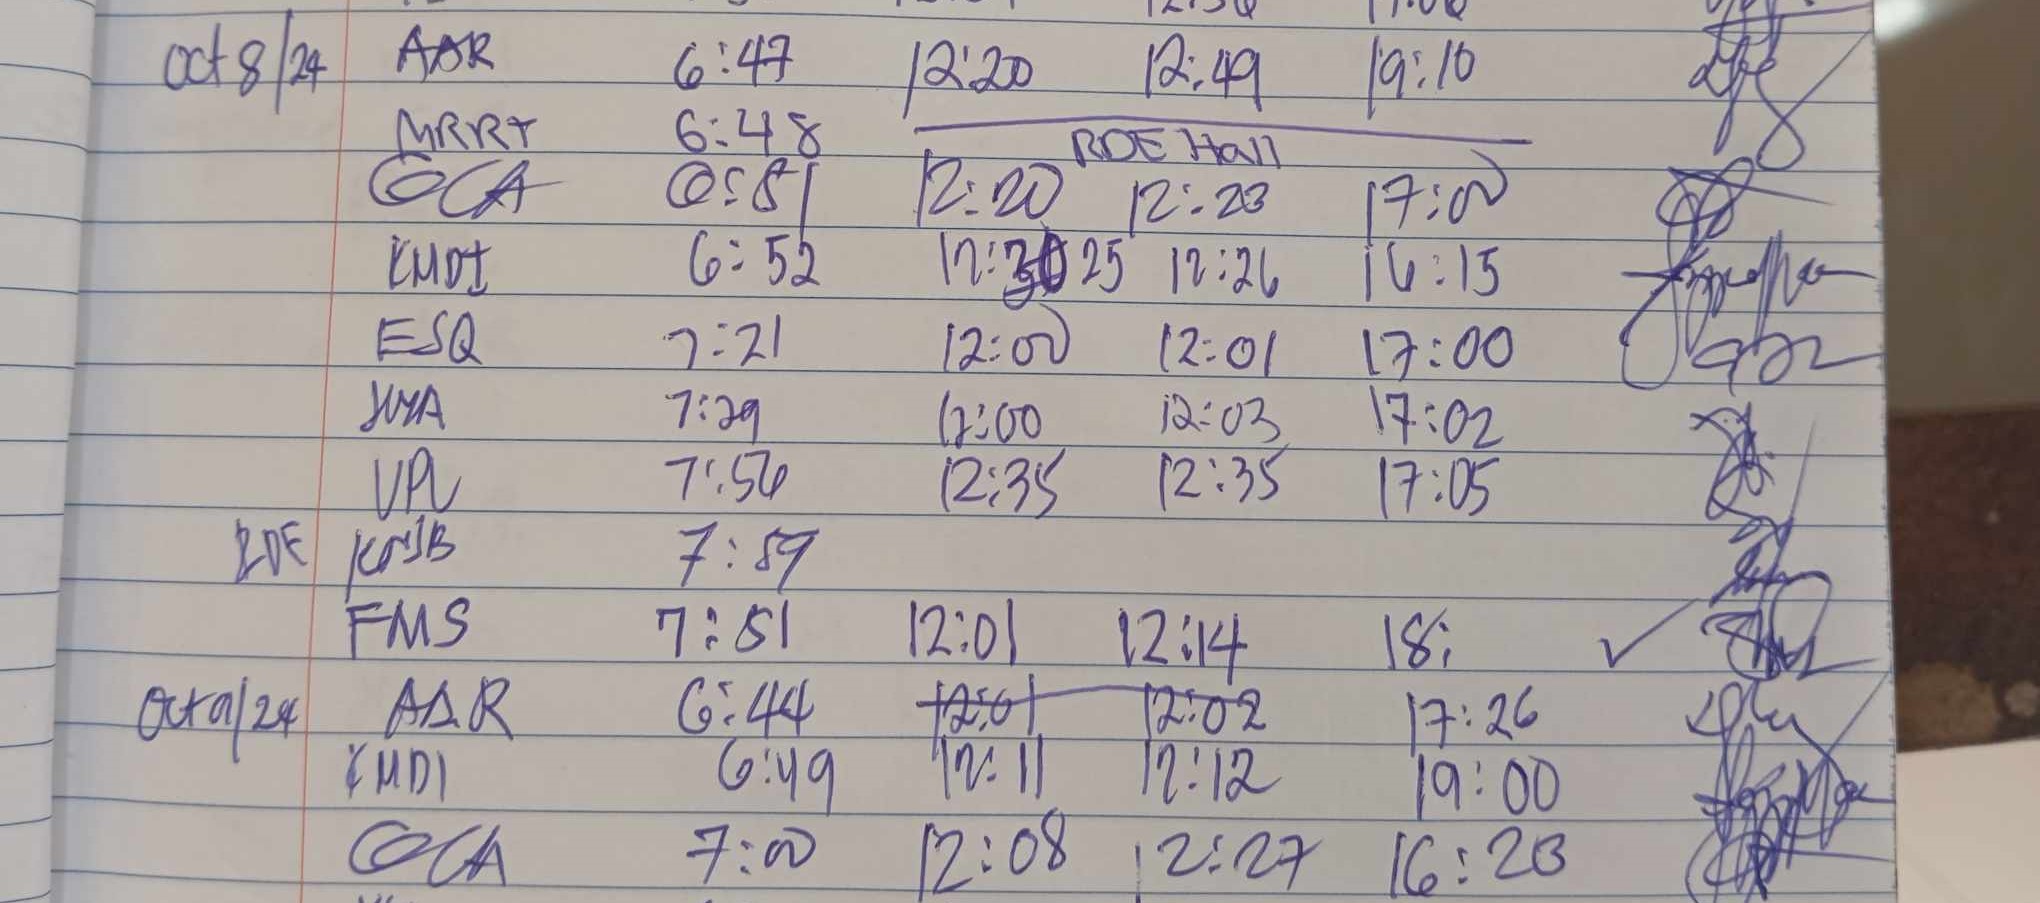 Oct 8/24 AAR 6:47 12:20 12:49 19:10
MRRT 6:48 RDE Hall
OCA 6:51 12:20 12:23 17:00
KMDI 6:52 12:25 12:26 16:15
ESQ 7:21 12:00 12:01 17:00
7:29 12:00 12:03 17:02
VPL 7:56 12:35 12:35 17:05
RDE 7:59
FMS 7:51 12:01 12:14 18:
Oct 9/24 AAR 6:44 12:01 12:02 17:26
KMDI 6:49 12:11 12:12 19:00
OCA 7:00 12:08 12:27 16:23